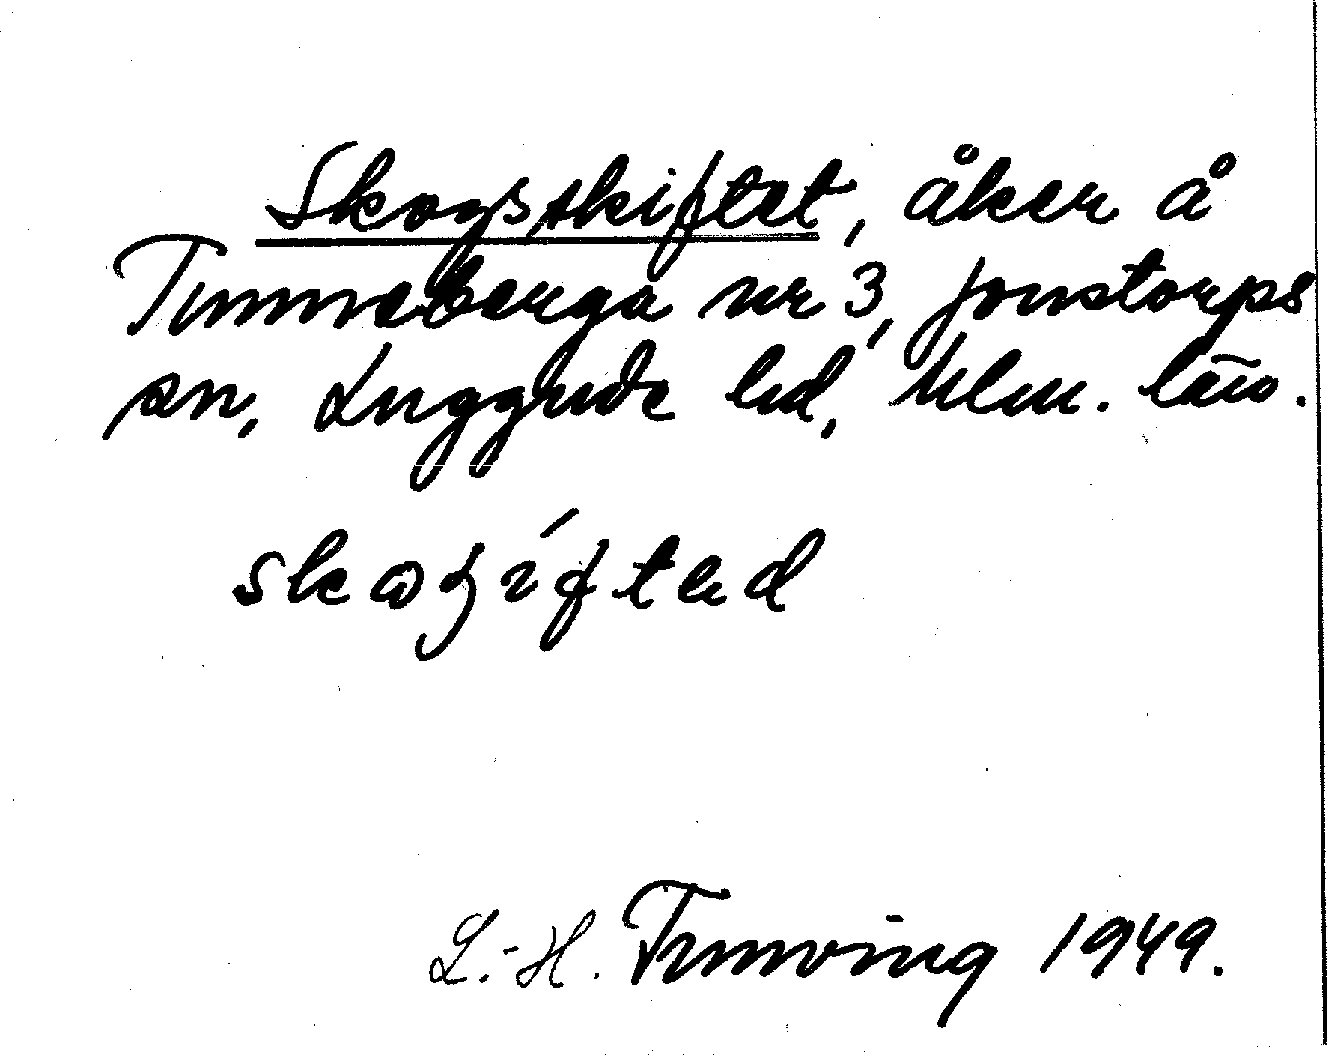 Skogsskiftet, åker å
Tunneberga nr 3, Jonstorps
sn, Luggude hd, Mlm. län.
L.-H. Tunving 1949.